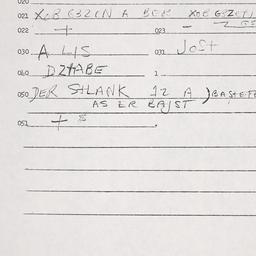 020
021 XOB G3ZEN A BER XOB G3ZEN
022 + 023 -
030 A LIS 031 JOST
040 DZHABE 1
050 DER SHLANK 12 A )BASHEFF
AS ER BAJST
051 + 8